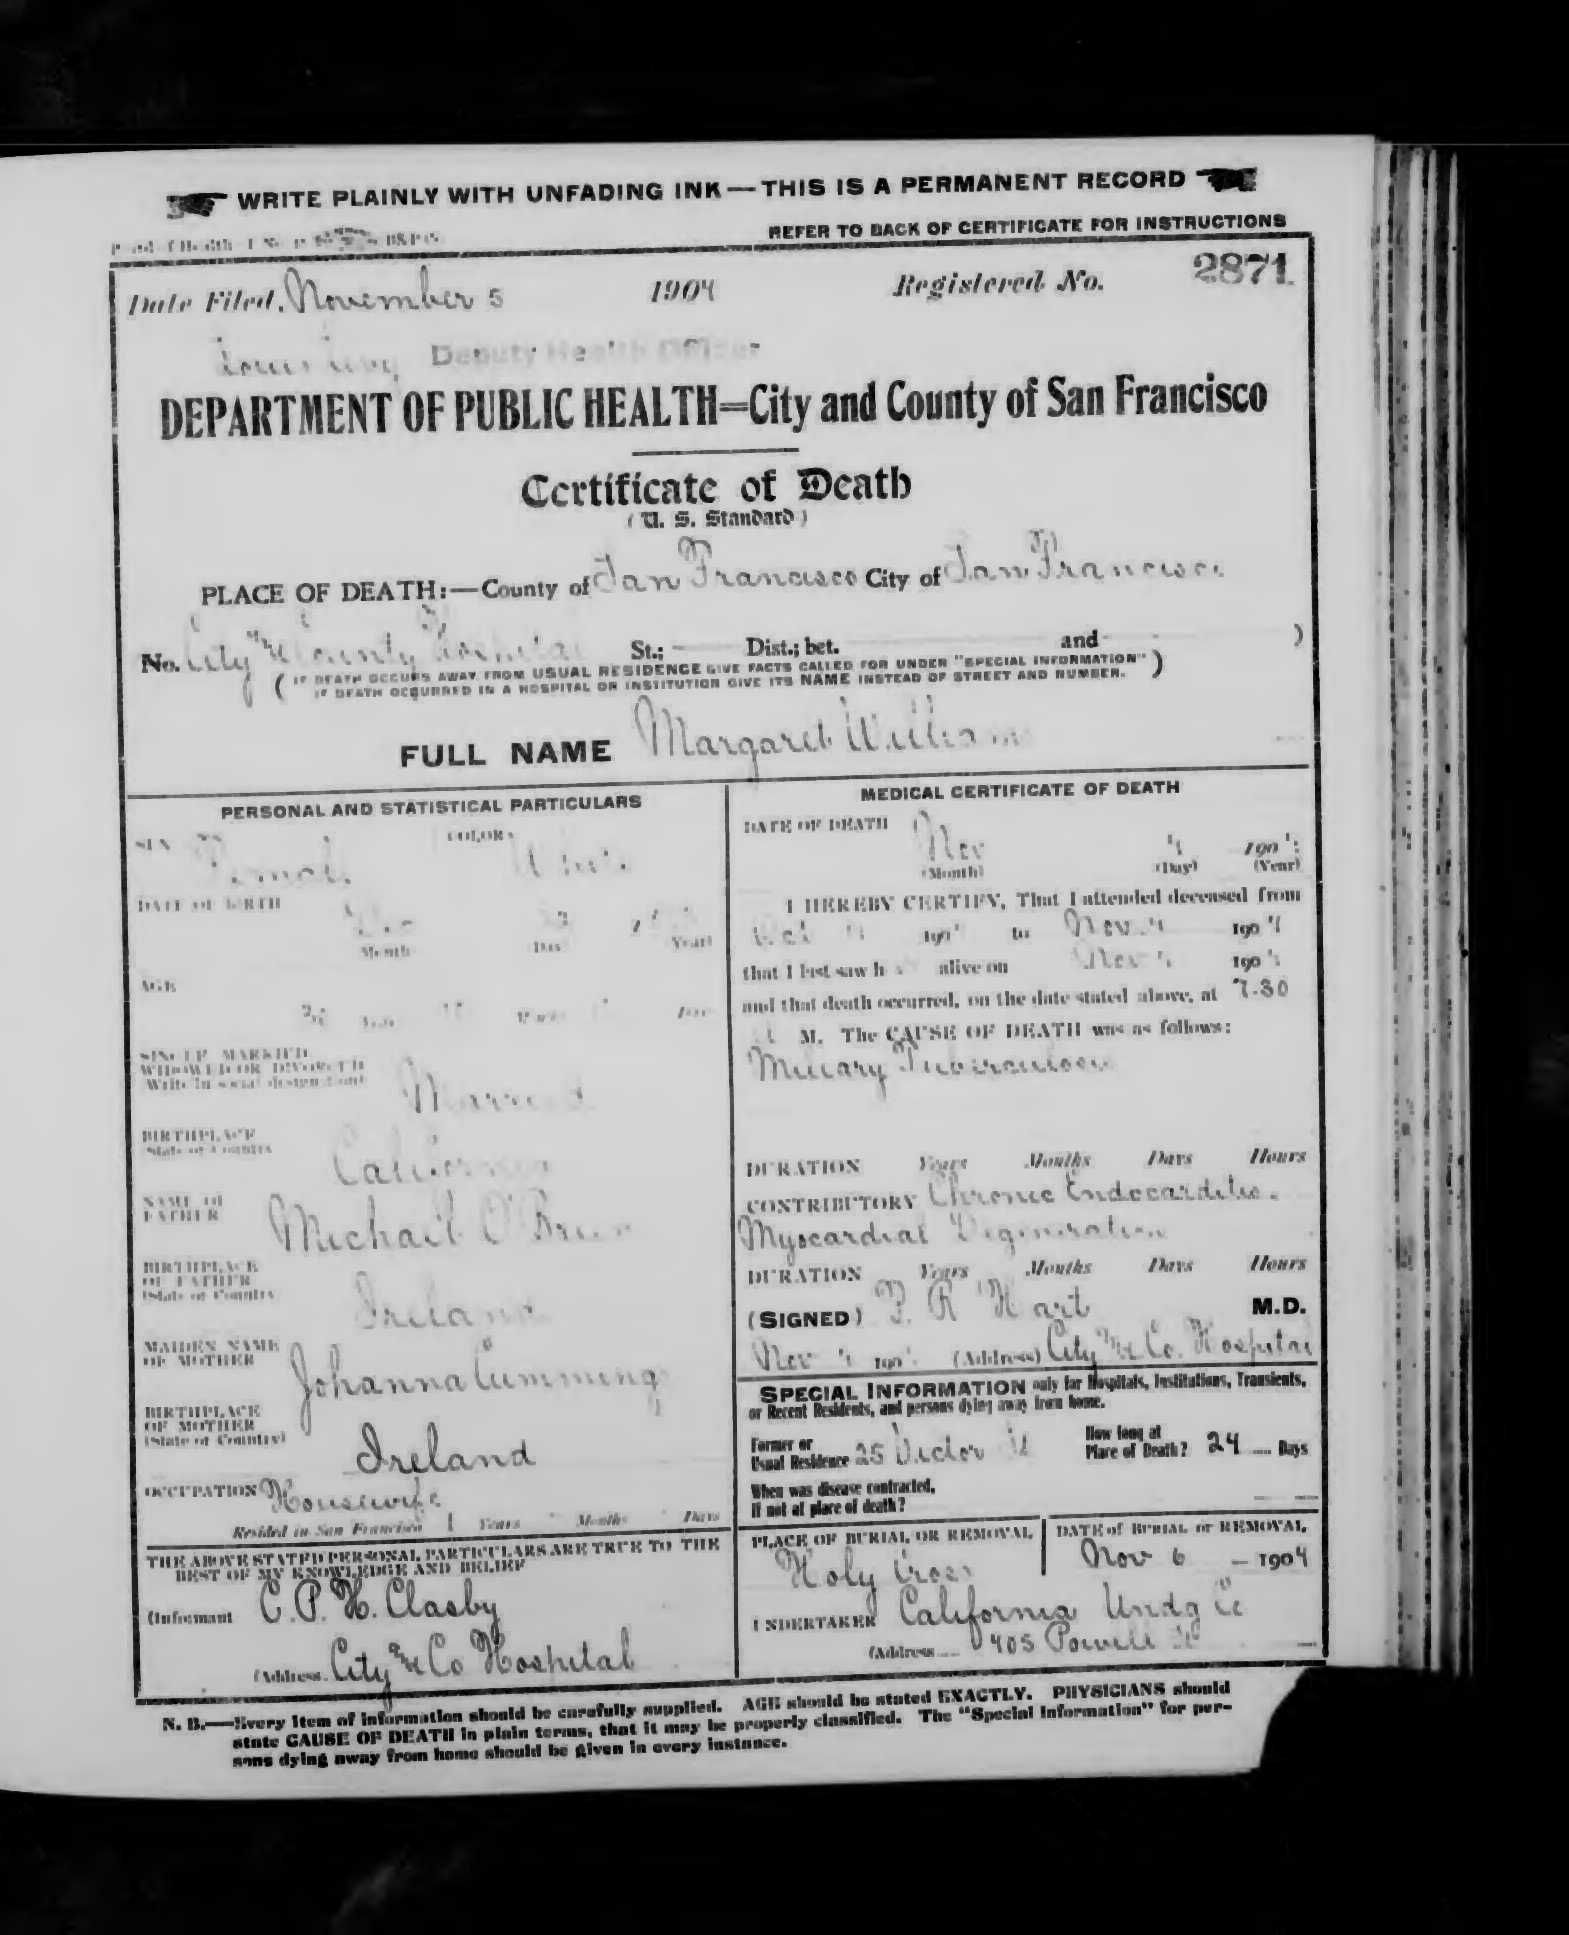 WRITE PLAINLY WITH UNFADING INK — THIS IS A PERMANENT RECORD
REFER TO BACK OF CERTIFICATE FOR INSTRUCTIONS
Date Filed, November 5 1904 Registered No. 2871
Deputy Health Officer
DEPARTMENT OF PUBLIC HEALTH=City and County of San Francisco
Certificate of Death
(U. S. Standard)
PLACE OF DEATH:—County of San Francisco City of San Francisco
No. City and County Hospital St.; Dist.; bet. and )
( IF DEATH OCCURS AWAY FROM USUAL RESIDENCE GIVE FACTS CALLED FOR UNDER "SPECIAL INFORMATION" )
IF DEATH OCCURRED IN A HOSPITAL OR INSTITUTION GIVE ITS NAME INSTEAD OF STREET AND NUMBER.
FULL NAME Margaret Williams
PERSONAL AND STATISTICAL PARTICULARS
SEX Female COLOR White
DATE OF BIRTH
Month Day Year
AGE
SINGLE, MARRIED,
WIDOWED OR DIVORCED
Write in social designation
Married
BIRTHPLACE
State or Country
California
NAME OF
FATHER
Michael O'Brien
BIRTHPLACE
OF FATHER
State or Country
Ireland
MAIDEN NAME
OF MOTHER
Johanna Cumming
BIRTHPLACE
OF MOTHER
(State or Country)
Ireland
OCCUPATION Housewife
Resided in San Francisco Years Months Days
THE ABOVE STATED PERSONAL PARTICULARS ARE TRUE TO THE
BEST OF MY KNOWLEDGE AND BELIEF
(Informant C. P. H. Clasby
(Address City and Co Hospital
MEDICAL CERTIFICATE OF DEATH
DATE OF DEATH
Nov 4 1904
(Month) (Day) (Year)
I HEREBY CERTIFY, That I attended deceased from
Oct 190 to Nov. 4 1904
that I last saw h alive on Nov 4 1904
and that death occurred, on the date stated above, at 7.30
M. The CAUSE OF DEATH was as follows:
Miliary Tuberculosis
DURATION Years Months Days Hours
CONTRIBUTORY Chronic Endocarditis.
Myocardial Degeneration
DURATION Years Months Days Hours
(SIGNED) P. R. Hart M.D.
Nov 4 1904 (Address) City and Co. Hospital
SPECIAL INFORMATION only for Hospitals, Institutions, Transients,
or Recent Residents, and persons dying away from home.
Former or
Usual Residence 25 Victor St
How long at
Place of Death? 24 Days
When was disease contracted,
If not at place of death?
PLACE OF BURIAL OR REMOVAL
Holy Cross
DATE of BURIAL or REMOVAL
Nov 6 1904
UNDERTAKER California Undg Co
(Address 405 Powell St
N. B.—Every item of information should be carefully supplied. AGE should be stated EXACTLY. PHYSICIANS should
state CAUSE OF DEATH in plain terms, that it may be properly classified. The "Special Information" for per-
sons dying away from home should be given in every instance.